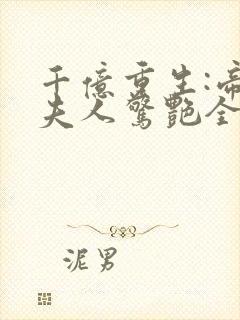 千億重生:帝
夫人驚艷全
泥男